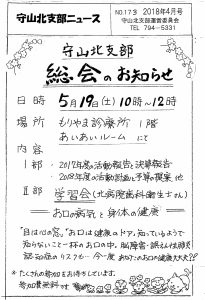 守山北支部ニュース
No.173 2018年4月号
守山北支部運営委員会
TEL 794-5331
守山北支部
総会のお知らせ
日時 5月19日(土)10時〜12時
場所 もりやま診療所 1階
あいあいルーム にて
内容
I部 ・2017年度の活動報告、決算報告
・2018年度の活動計画と予算の提案、他
II部 学習会(北病院歯科衛生士さん)
―お口の病気と身体の健康―
「目は心の窓」、「お口は健康のドア」、知っているようで
知らないこと一杯のお口の中。脳障害・誤えん性肺炎
認知症のリスクも… 今度
*たくさんの参加をお待ちしています。
参加費無料です